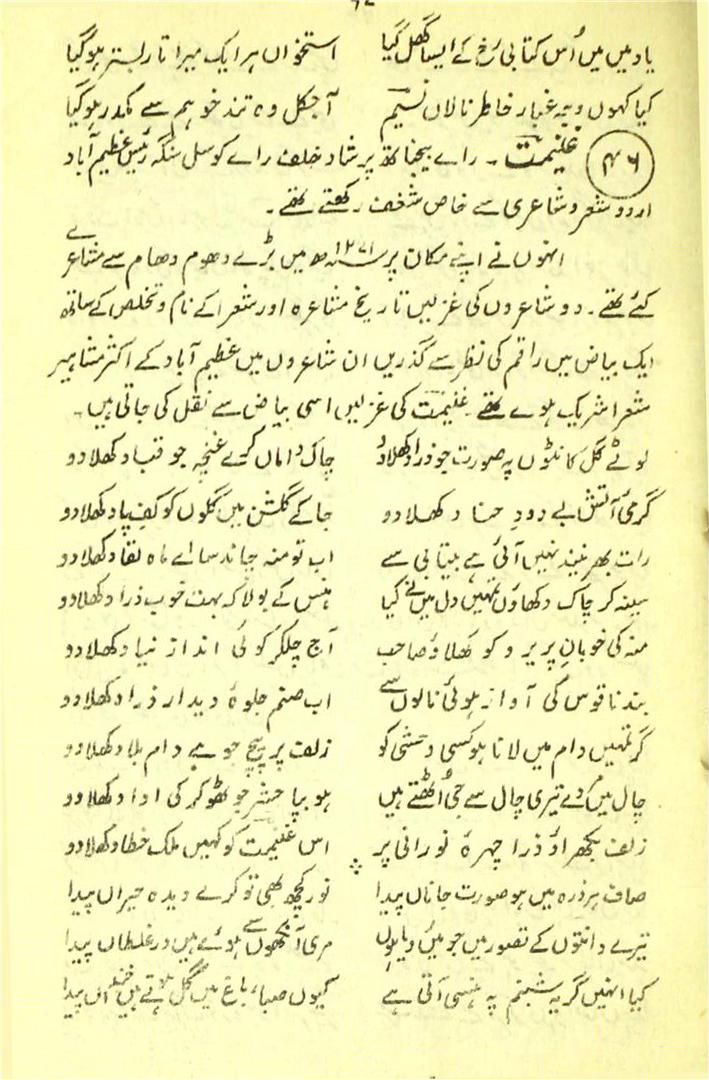 یاد میں میں اُس کتابی رُخ کے ایسا گھل گیا استخواں ہر ایک میرا تارِ بستر ہوگیا
کیا کہوں وجہ غبار خاطر نالاں نسیم آجکل وہ تند خو ہم سے مکدر ہوگیا
۴۶ غنیمت ۔ راے بیجناتھ پرشاد خلف راے کوسل سنگہ رئیس عظیم آباد
اردو شعر و شاعری سے خاص شغف رکھتے تھے ۔
انہوں نے اپنے مکان پر سنہ ۱۲۷۱ھ میں بڑے دھوم دھام سے مشاعرے
کئے تھے ۔ دو شاعروں کی غزلیں تاریخ مشاعرہ اور شعرا کے نام و تخلص کے ساتھ
ایک بیاض میں راقم کی نظر سے گذریں ان شاعروں میں عظیم آباد کے اکثر مشاہیر
شعرا شریک ہوے تھے ۔ غنیمت کی غزلیں اسی بیاض سے نقل کی جاتی ہیں ۔
لوٹے گل کانٹوں پہ صورت جو ذرا دکھلادو چاک داماں کرے غنچہ جو قبا دکھلادو
گرمیٔ آتش بے دودِ حنا دکھلادو جاکے گلشن میں گلوں کو کفِ پا دکھلادو
رات بھر نیند نہیں آئی ہے بیتابی سے اب تو منہ چاند سا اے ماہ لقا دکھلادو
سینہ کر چاک دکھاؤں تمہیں دل میں نے کہا ہنس کے بولا کہ بہت خوب ذرا دکھلادو
منہ کی خوبانِ پریرو کو کھلاؤ صاحب آج چلکر کوئی انداز نیا دکھلادو
بند ناقوس کی آواز ہوئی نالوں سے اب صنم جلوۂ دیدار ذرا دکھلادو
گر تمہیں دام میں لانا ہو کسی وحشی کو زلف پر پیچ جو ہے دام بلا دکھلادو
چال میں مردے تیری چال سے جی اُٹھتے ہیں ہو بپا حشر جو ٹھوکر کی ادا دکھلادو
زلف بکھراؤ ذرا چہرۂ نورانی پر اس غنیمت کو کہیں ملک خطا دکھلادو
صاف ہر ذرہ میں ہو صورت جاناں پیدا نور کچھ بھی تو کرے دیدہ حیراں پیدا
تیرے دانتوں کے تصور میں جو میں رویا ہوں مری آنکھوں سے ہوئے ہیں در غلطاں پیدا
کیا انہیں گریہ شبنم پہ ہنسی آتی ہے کیوں صبا، باغ میں گل ہوتے ہیں خنداں پیدا